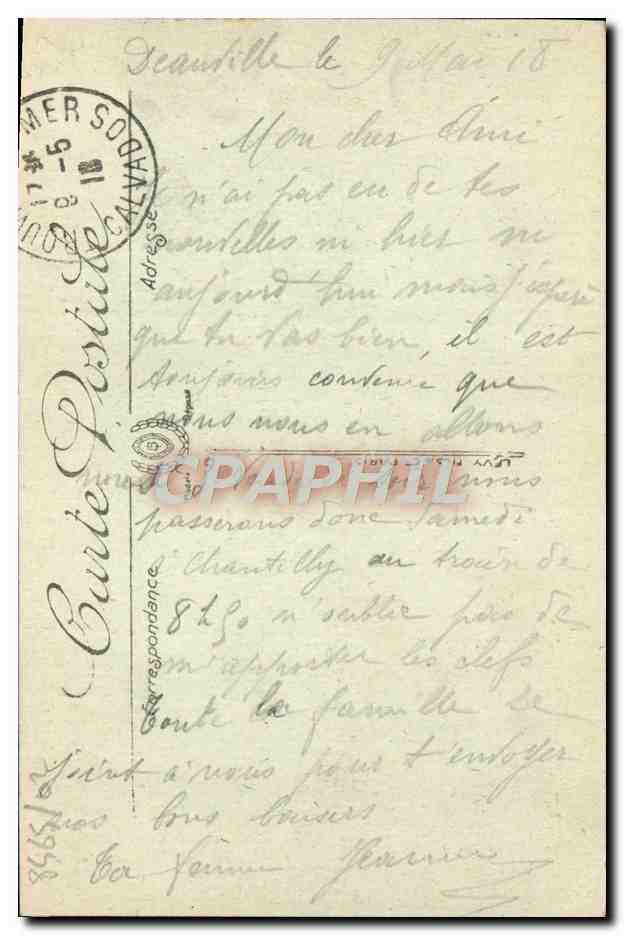 Deauville le 9 Mai 18
Mon cher Ami
n'ai pas eu de tes
nouvelles ni hier ni
aujourd'hui mais j'espère
que tu vas bien, il est
toujours convenu que
nous nous en allons
nous
passerons donc Samedi
à Chantilly au train de
8h50 n'oublie pas de
m'apporter les clefs
toute la famille se
joint à nous pour t'envoyer
nos bons baisers
Ta femme Jeanne
Carte Postale
Correspondance
Adresse
MER
CALVADOS
CPAPHIL
8465/02